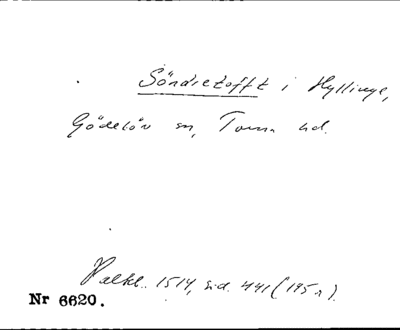 Söndretofft i Hyllinge,
Gödelöv sn, Torna hd.
Palteb. 1514, sid. 441 (195 r).
Nr 6620.